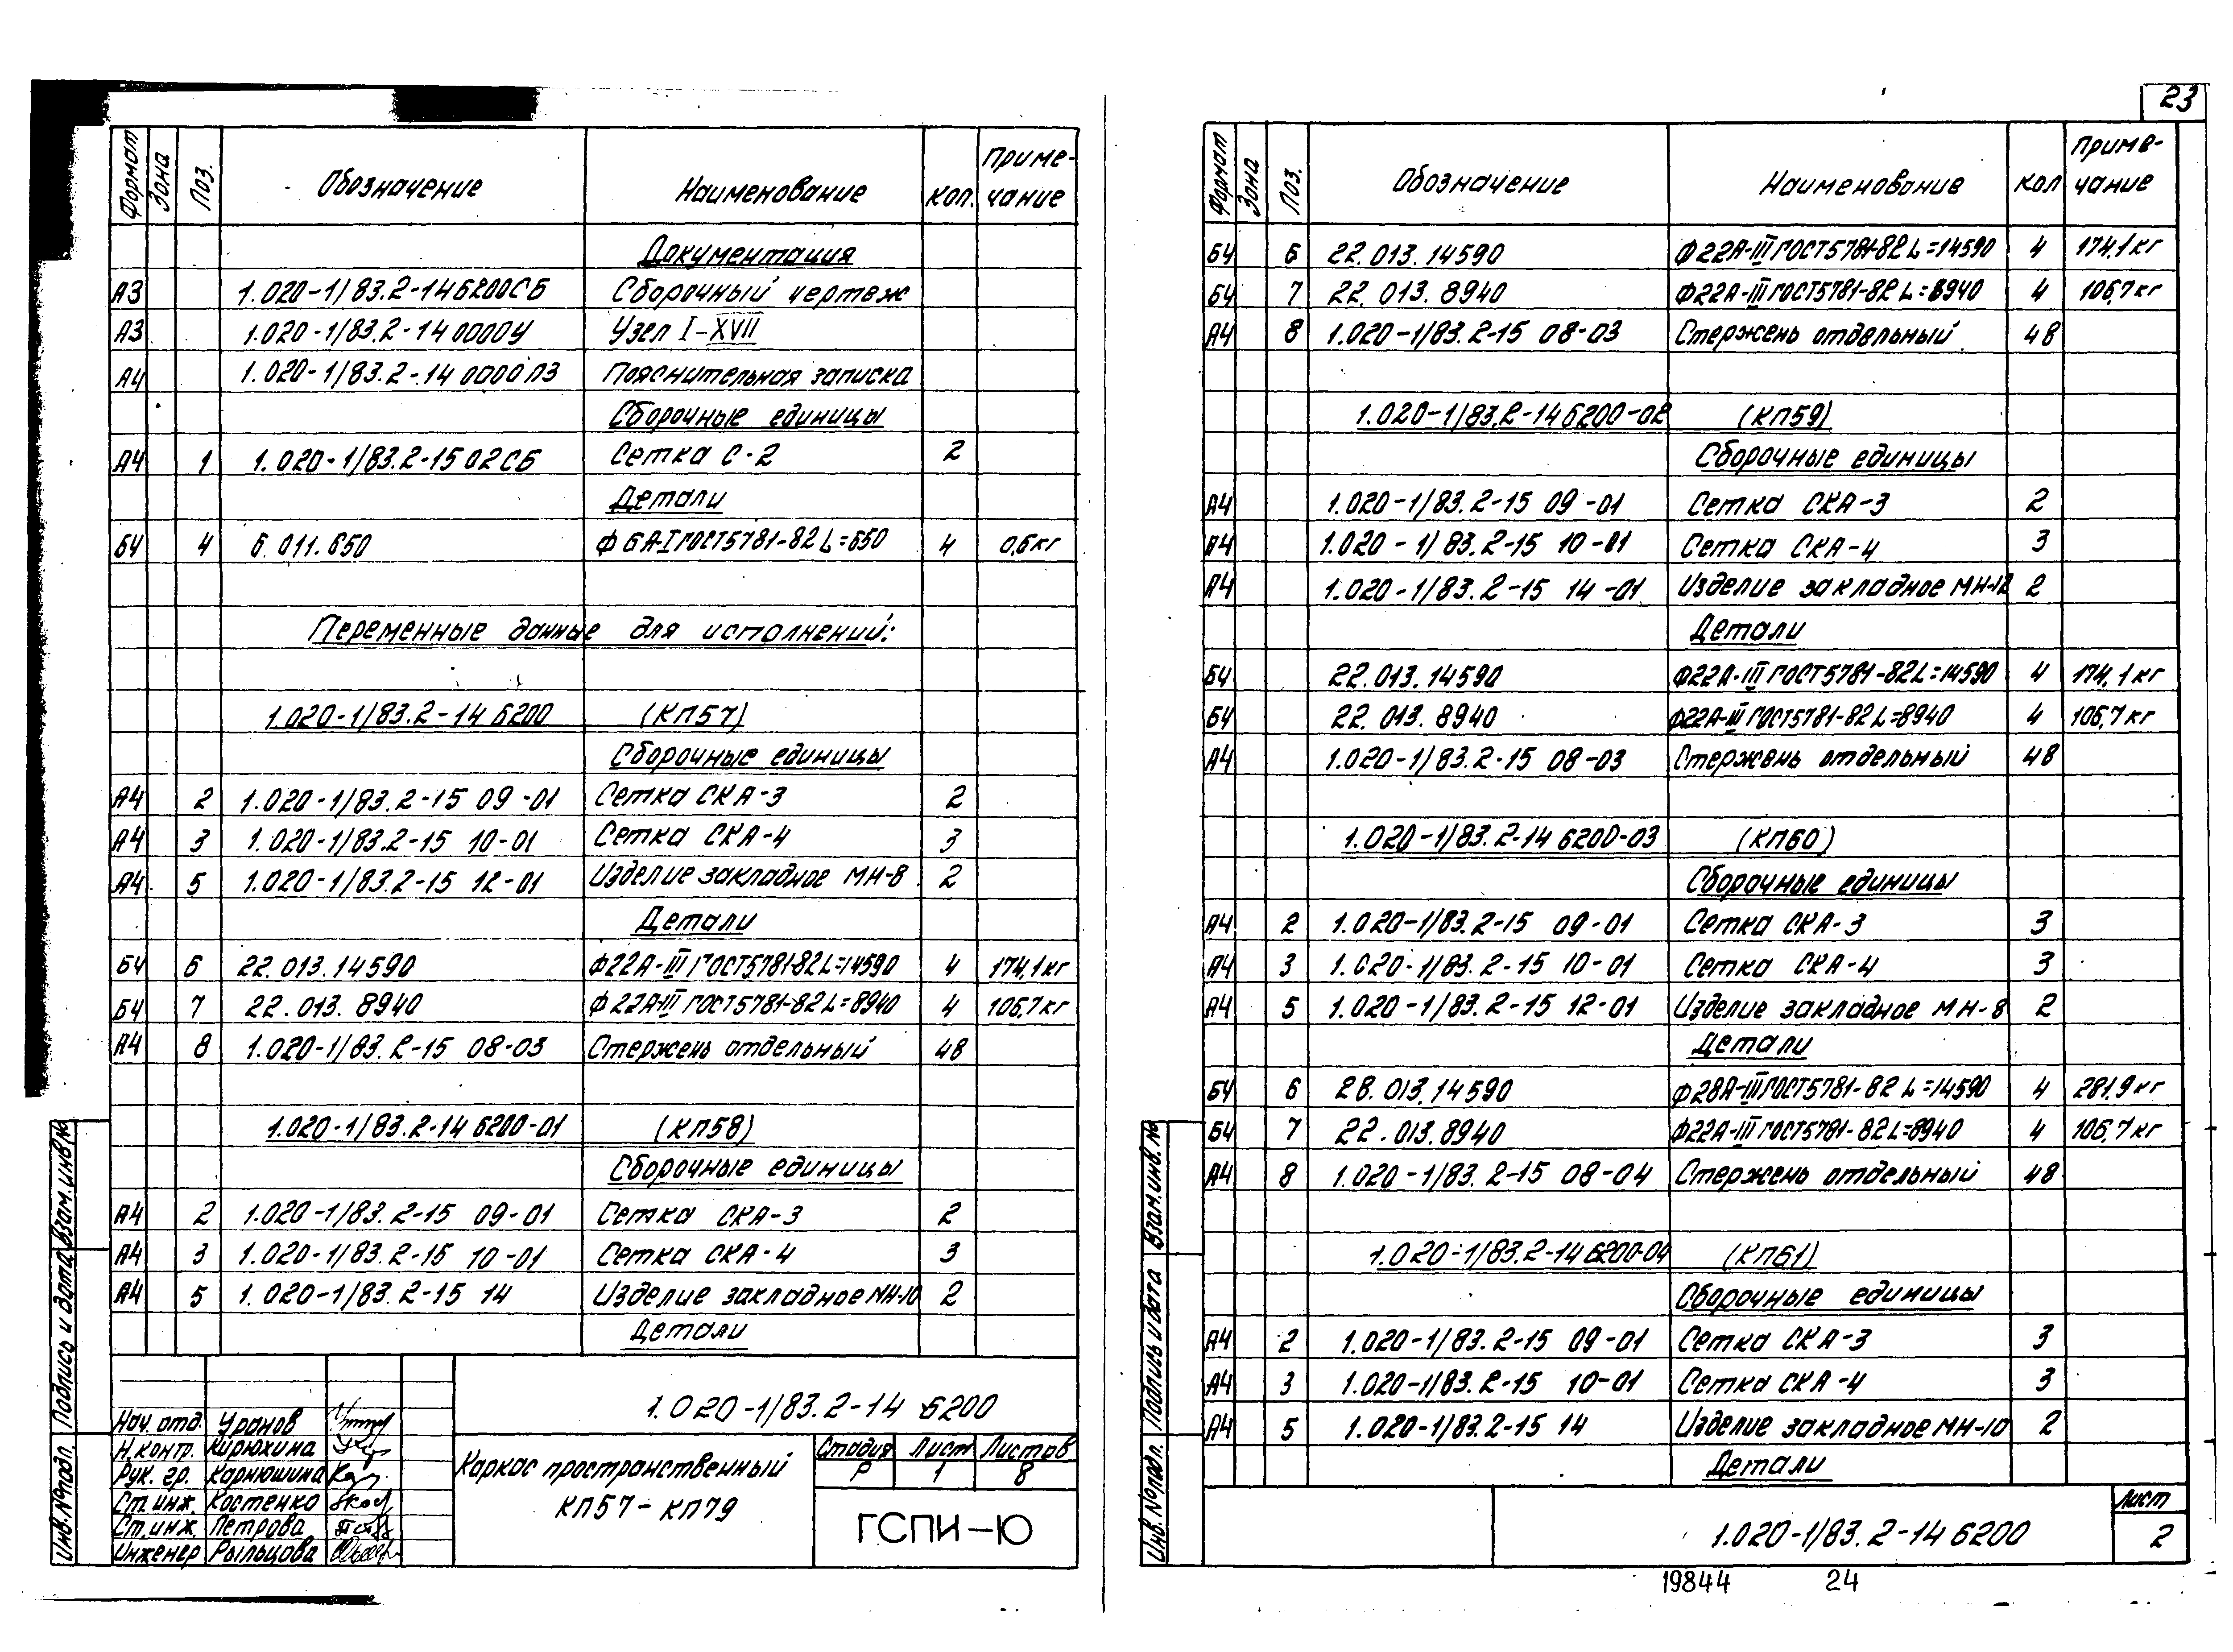 Формат Зона Поз. Обозначение Наименование Кол. Приме-
чание
Документация
А3 1.020-1/83.2-14 6200СБ Сборочный чертеж
А3 1.020-1/83.2-14 0000У Узел I-XVII
А4 1.020-1/83.2-14 0000ПЗ Пояснительная записка
Сборочные единицы
А4 1 1.020-1/83.2-15 02СБ Сетка С-2 2
Детали
БЧ 4 6.011.650 Ф6А-I ГОСТ5781-82 L=650 4 0,6кг
Переменные данные для исполнений:
1.020-1/83.2-14 6200 (КП57)
Сборочные единицы
А4 2 1.020-1/83.2-15 09-01 Сетка СКА-3 2
А4 3 1.020-1/83.2-15 10-01 Сетка СКА-4 3
А4 5 1.020-1/83.2-15 12-01 Изделие закладное МН-8 2
Детали
БЧ 6 22.013.14590 Ф22А-III ГОСТ5781-82 L=14590 4 174,1кг
БЧ 7 22.013.8940 Ф22А-III ГОСТ5781-82 L=8940 4 106,7кг
А4 8 1.020-1/83.2-15 08-03 Стержень отдельный 48
1.020-1/83.2-14 6200-01 (КП58)
Сборочные единицы
А4 2 1.020-1/83.2-15 09-01 Сетка СКА-3 2
А4 3 1.020-1/83.2-15 10-01 Сетка СКА-4 3
А4 5 1.020-1/83.2-15 14 Изделие закладное МН-10 2
Детали
1.020-1/83.2-14 6200
Нач. отд. Уранов
Н.контр. Кирюхина
Рук. гр. Карнюшина
Ст.инж. Костенко
Ст.инж. Петрова
Инженер Рыльцова
Каркас пространственный
КП57-КП79
Стадия Лист Листов
Р 1 8
ГСПИ-Ю
Инв.№подл. Подпись и дата Взам.инв.№
23
Формат Зона Поз. Обозначение Наименование Кол Приме-
чание
БЧ 6 22.013.14590 Ф22А-III ГОСТ5781-82 L=14590 4 174,1кг
БЧ 7 22.013.8940 Ф22А-III ГОСТ5781-82 L=8940 4 106,7кг
А4 8 1.020-1/83.2-15 08-03 Стержень отдельный 48
1.020-1/83.2-14 6200-02 (КП59)
Сборочные единицы
А4 1.020-1/83.2-15 09-01 Сетка СКА-3 2
А4 1.020-1/83.2-15 10-01 Сетка СКА-4 3
А4 1.020-1/83.2-15 14-01 Изделие закладное МН-12 2
Детали
БЧ 22.013.14590 Ф22А-III ГОСТ5781-82 L=14590 4 174,1кг
БЧ 22.013.8940 Ф22А-III ГОСТ5781-82 L=8940 4 106,7кг
А4 1.020-1/83.2-15 08-03 Стержень отдельный 48
1.020-1/83.2-14 6200-03 (КП60)
Сборочные единицы
А4 2 1.020-1/83.2-15 09-01 Сетка СКА-3 3
А4 3 1.020-1/83.2-15 10-01 Сетка СКА-4 3
А4 5 1.020-1/83.2-15 12-01 Изделие закладное МН-8 2
Детали
БЧ 6 28.013.14590 Ф28А-III ГОСТ5781-82 L=14590 4 281,9кг
БЧ 7 22.013.8940 Ф22А-III ГОСТ5781-82 L=8940 4 106,7кг
А4 8 1.020-1/83.2-15 08-04 Стержень отдельный 48
1.020-1/83.2-14 6200-04 (КП61)
Сборочные единицы
А4 2 1.020-1/83.2-15 09-01 Сетка СКА-3 3
А4 3 1.020-1/83.2-15 10-01 Сетка СКА-4 3
А4 5 1.020-1/83.2-15 14 Изделие закладное МН-10 2
Детали
1.020-1/83.2-14 6200
Лист
2
Инв.№подл. Подпись и дата Взам.инв.№
19844 24